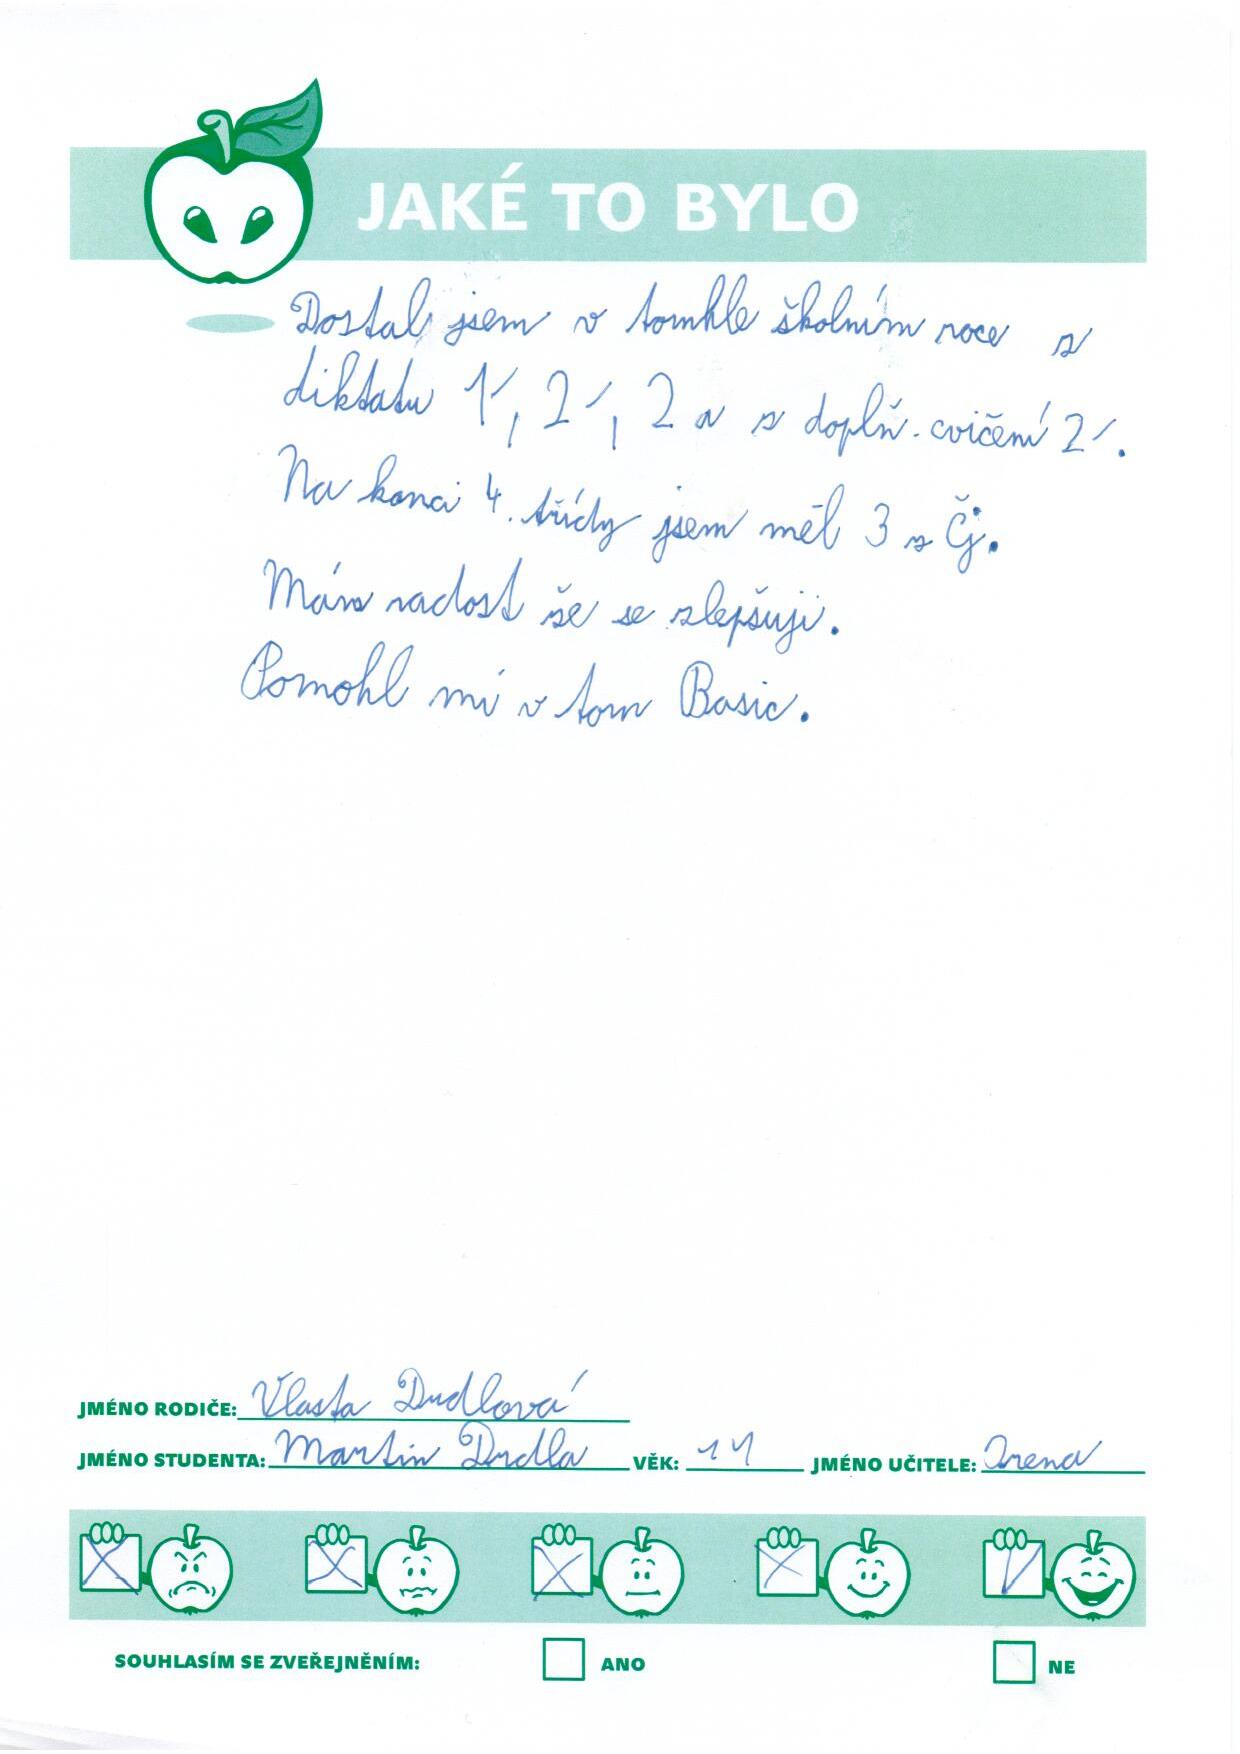 JAKÉ TO BYLO
Dostal jsem v tomhle školním roce z
diktatu 1-, 2-, 2 a z doplň. cvičení 2-.
Na konci 4. třídy jsem měl 3 z Čj.
Mám radost že se zlepšuji.
Pomohl mi v tom Basic.
JMÉNO RODIČE: Vlasta Drdlová
JMÉNO STUDENTA: Martin Drdla VĚK: 11 JMÉNO UČITELE: Irena
SOUHLASÍM SE ZVEŘEJNĚNÍM: ANO NE